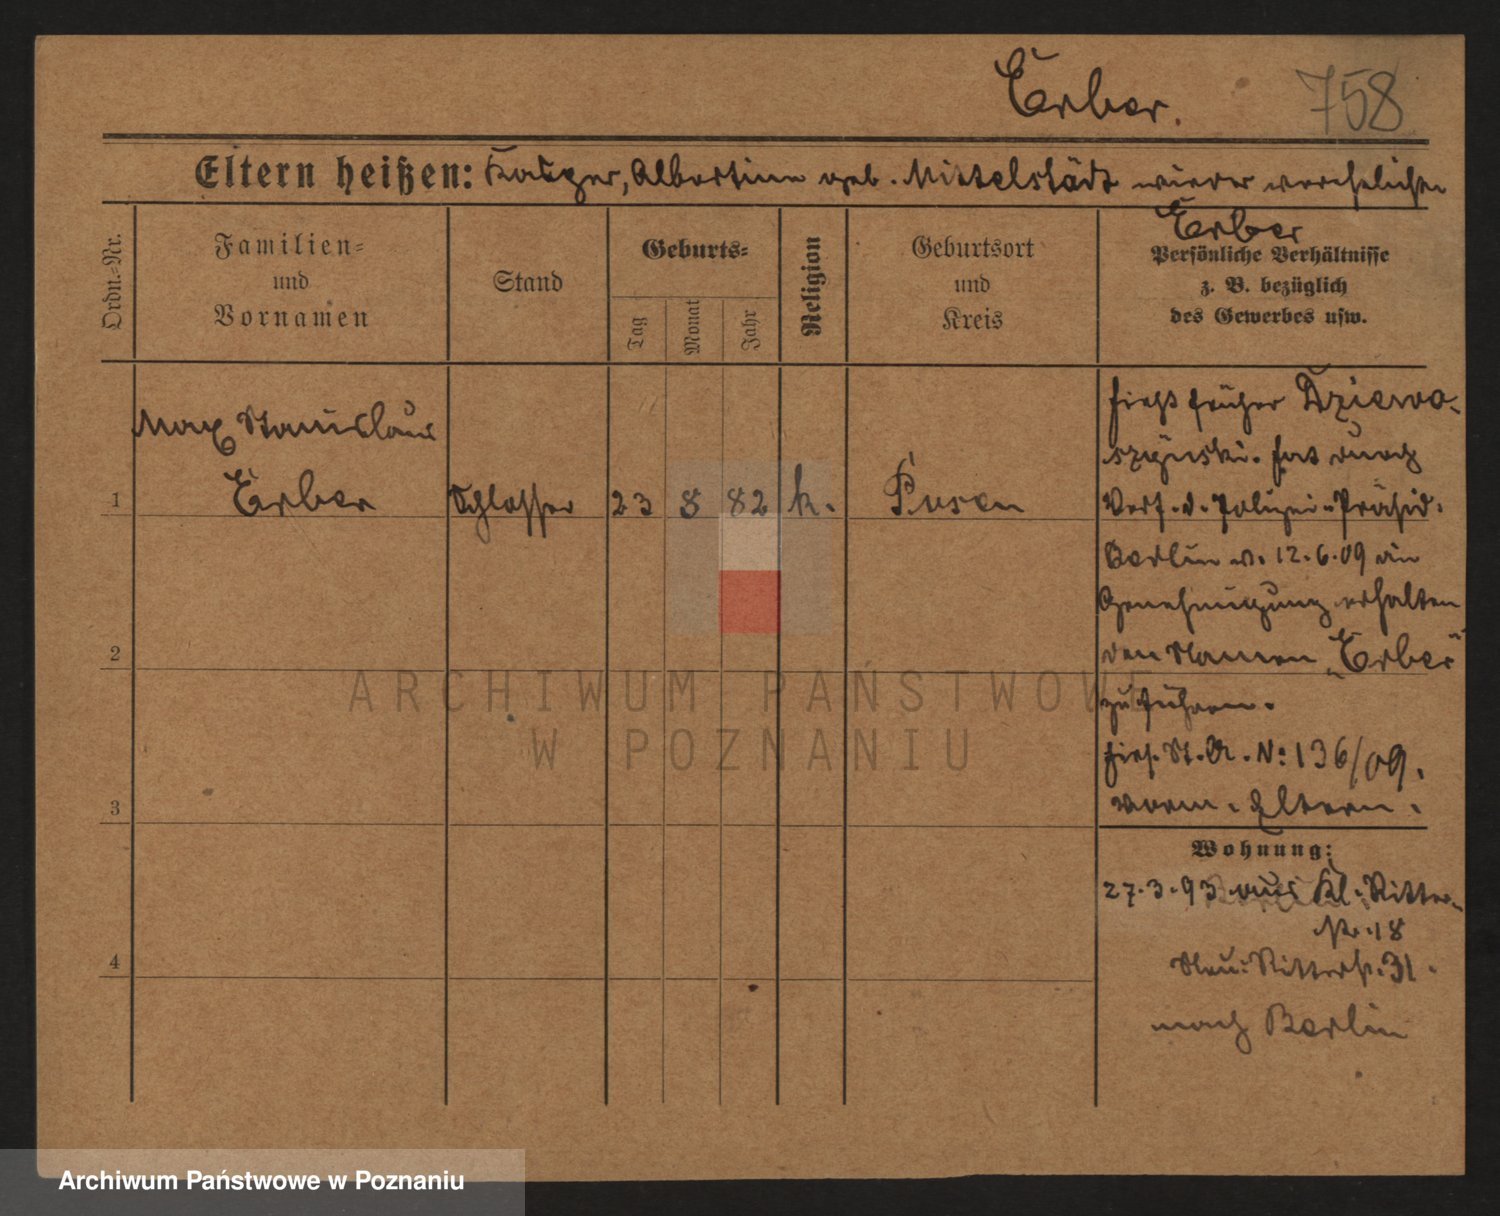 Erber. 758
Eltern heißen: Albertine geb. Mittelstädt wieder verehelichte
Erber
Ordn.-Nr.
Familien-
und
Vornamen
Stand
Geburts-
Tag
Monat
Jahr
Religion
Geburtsort
und
Kreis
Persönliche Verhältnisse
z. B. bezüglich
des Gewerbes usw.
Max Stanislaus
1 Erber Schlosser 23 8 82 k. Posen
2
3
4
hieß früher Dziewo-
szynski. hat durch
Verf. d. Polizei-Präsid.
Berlin v. 12.6.09 die
Genehmigung erhalten
den Namen „Erber“
zu führen.
hies. St. A. N: 136/09.
verm. Eltern.
Wohnung:
27.3.93 aus Kl. Ritter-
Nr. 18
Neu: Ritterst. 31.
nach Berlin
ARCHIWUM PAŃSTWOWE
W POZNANIU
Archiwum Państwowe w Poznaniu